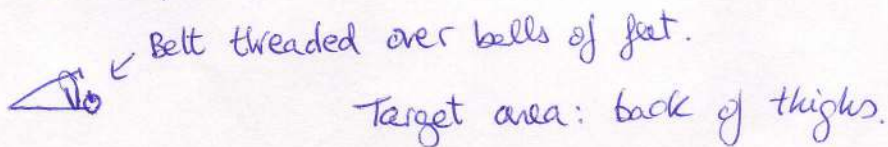 Belt threaded over balls of feet.
Target area: back of thighs.